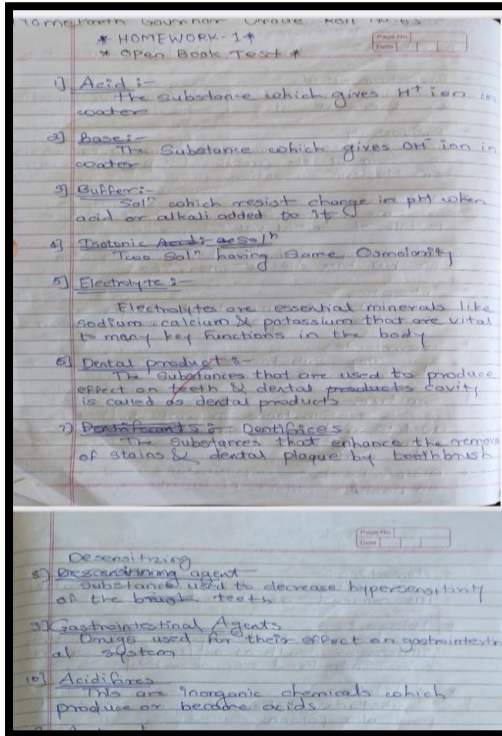 Roll No 63
* HOMEWORK-1 *
* Open Book Test *
Page No
Date
1] Acid :-
The Substance which gives H+ ion in
water
2] Base:-
The Substance which gives OH- ion in
water
3] Buffer:-
Solⁿ which resist change in pH when
acid or alkali added to it
4] Isotonic Solⁿ
Two Solⁿ having Same Osmolarity
5] Electrolyte :-
Electrolytes are essential minerals like
sodium, calcium & potassium that are vital
to many key functions in the body
6] Dental product :-
The Substances that are used to produce
effect on teeth & dental products cavity
is called as dental products
7) Dentifricants :- Dentifices
The Substances that enhance the remova
of stains & dental plaque by toothbrush
Page No
Date
Desensitizing
8] agent
Substance used to decrease hypersensitanty
of the teeth
9] Gastrointestinal Agents
Drugs used for their effect on gastrointesti
al system
10] Acidifires
This are inorganic chemicals which
produce or become acids